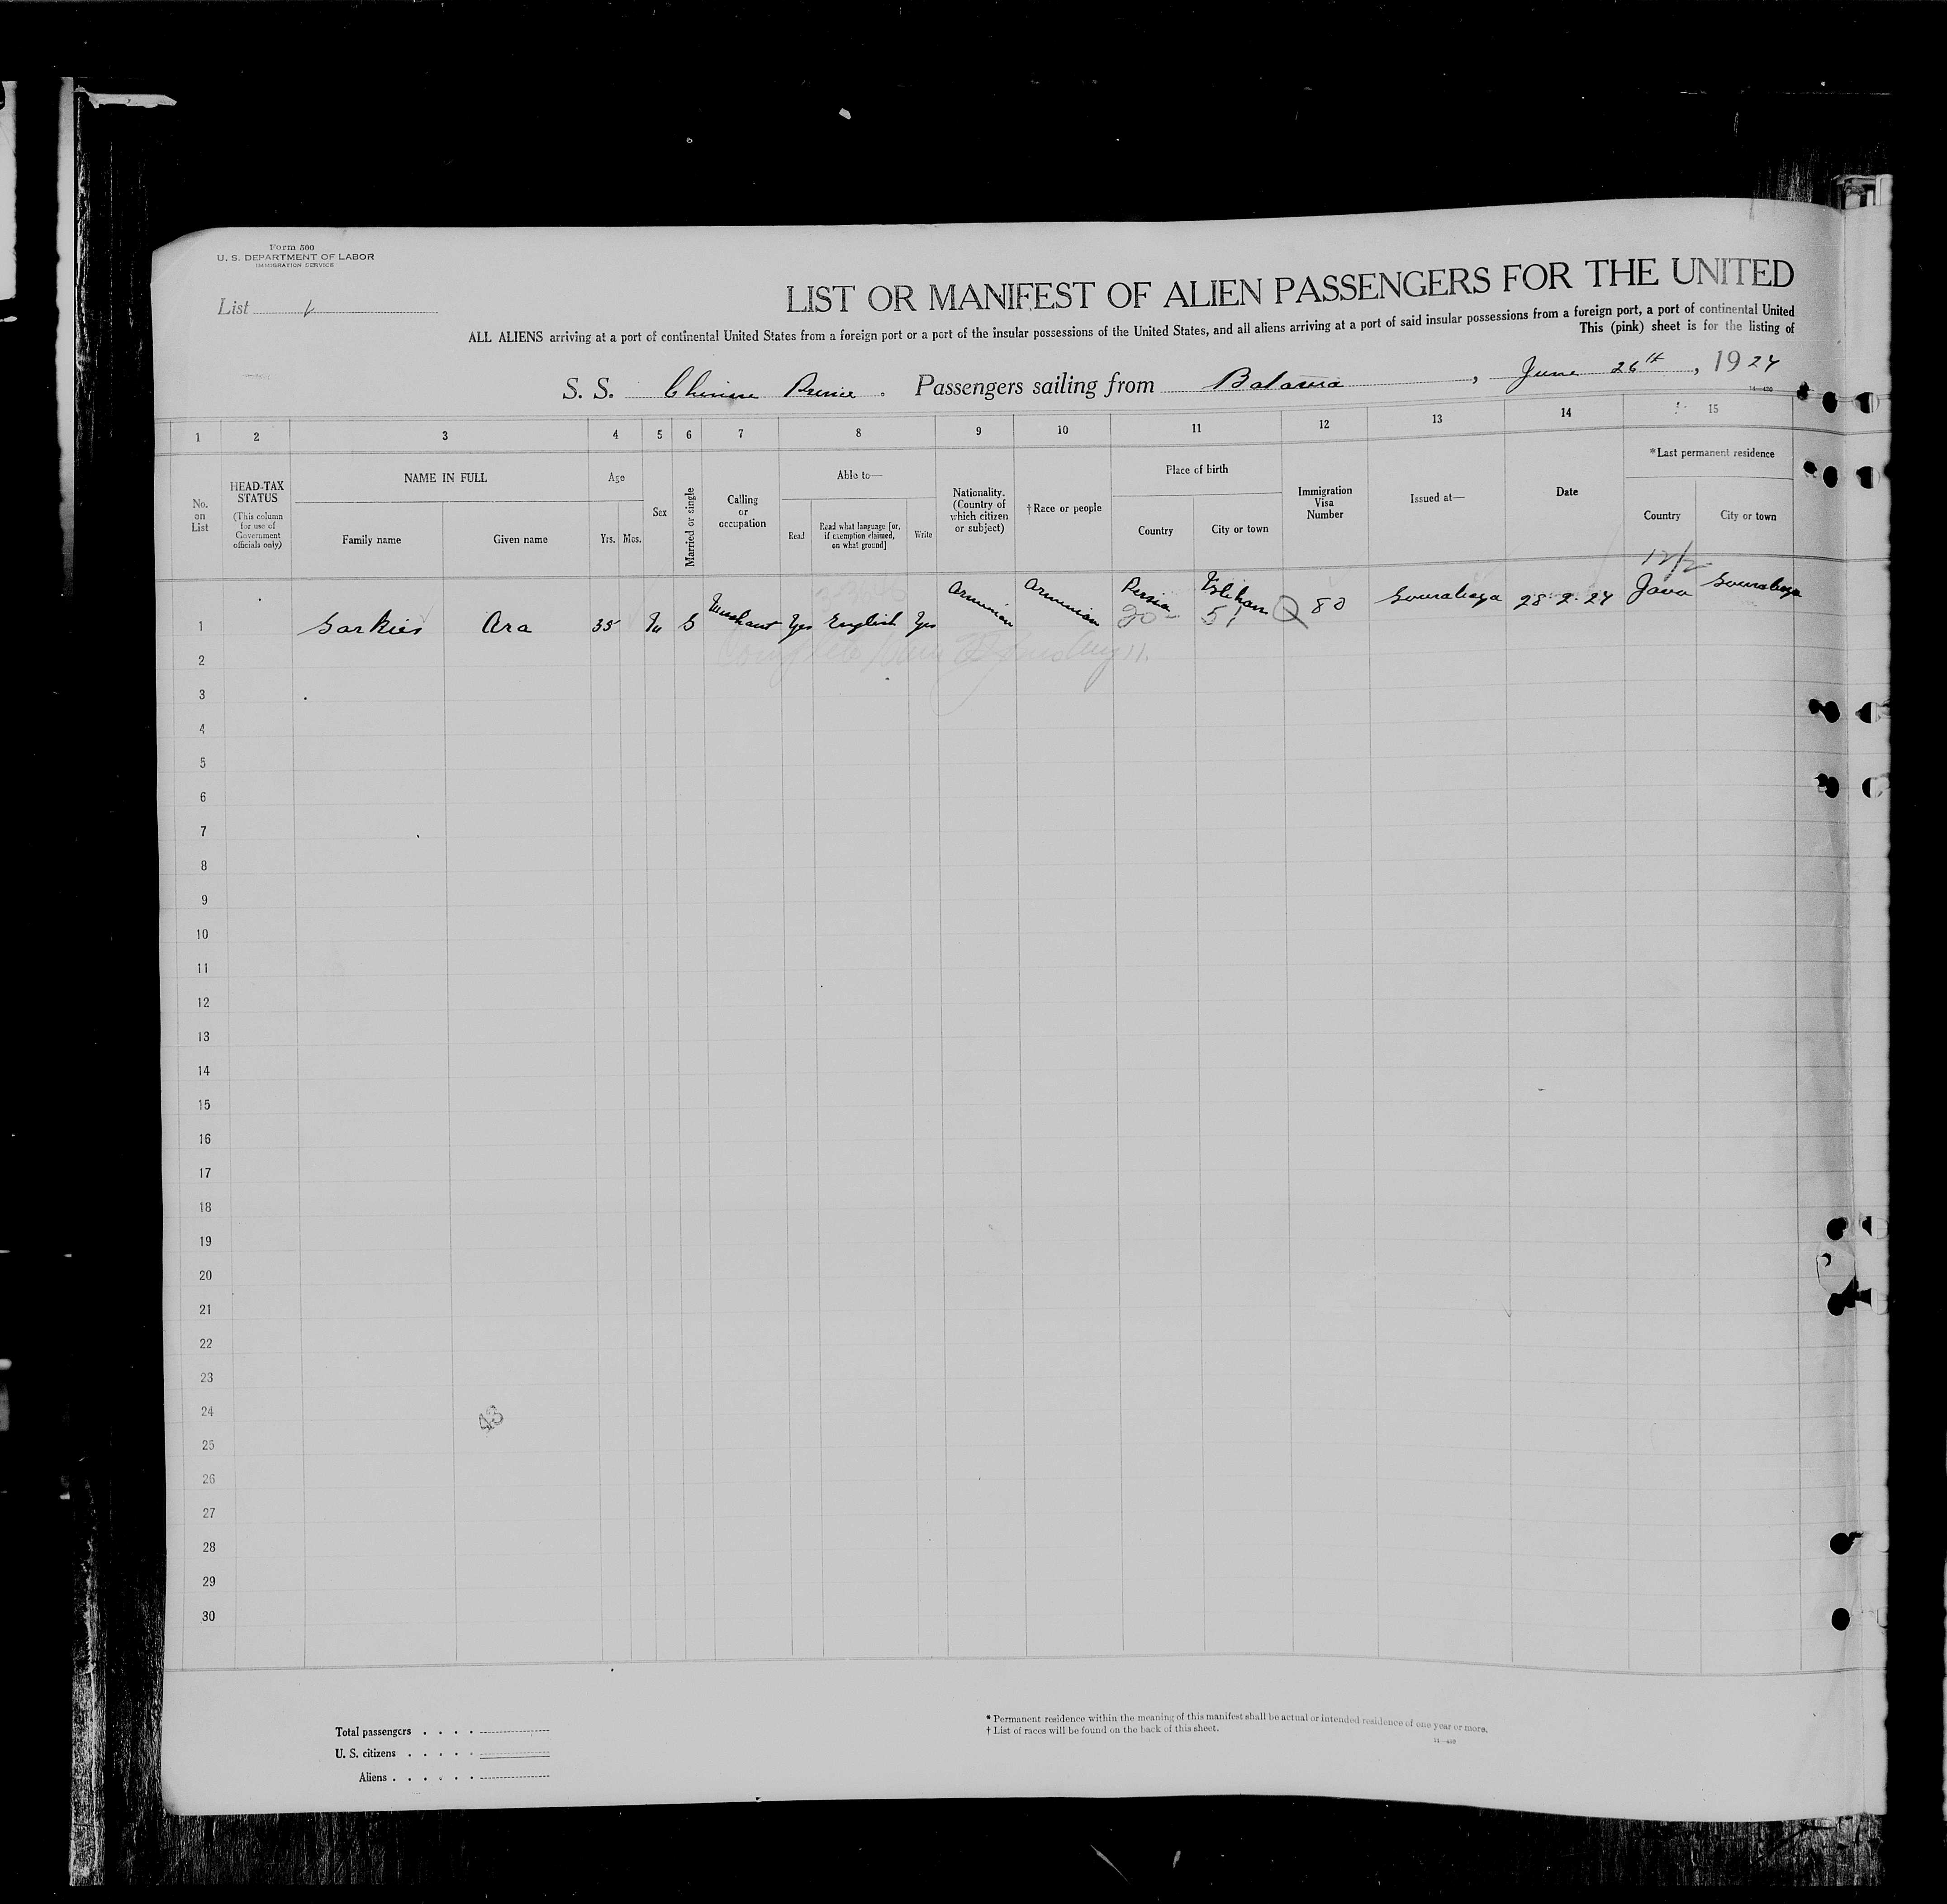 Form 500
U. S. DEPARTMENT OF LABOR
IMMIGRATION SERVICE
List
LIST OR MANIFEST OF ALIEN PASSENGERS FOR THE UNITED
ALL ALIENS arriving at a port of continental United States from a foreign port or a port of the insular possessions of the United States, and all aliens arriving at a port of said insular possessions from a foreign port, a port of continental United
This (pink) sheet is for the listing of
S. S. Chinese Prince. Passengers sailing from Batavia, June 26th, 1924
1 2 3 4 5 6 7 8 9 10 11 12 13 14 15
No. on List
HEAD-TAX STATUS
(This column for use of Government officials only)
NAME IN FULL
Family name
Given name
Age
Yrs. Mos.
Sex
Married or single
Calling or occupation
Able to—
Read
Read what language [or, if exemption claimed, on what ground]
Write
Nationality. (Country of which citizen or subject)
†Race or people
Place of birth
Country
City or town
Immigration Visa Number
Issued at—
Date
*Last permanent residence
Country
City or town
1 Sarkies Ara 35 M S Merchant Yes English Yes Armenian Armenian Persia 80 Sourabaya 28-2-24 Java Sourabaya
20 51
2
3
4
5
6
7
8
9
10
11
12
13
14
15
16
17
18
19
20
21
22
23
24
43
25
26
27
28
29
30
Total passengers . . . .
U. S. citizens . . . . .
Aliens . . . . . .
* Permanent residence within the meaning of this manifest shall be actual or intended residence of one year or more.
† List of races will be found on the back of this sheet.